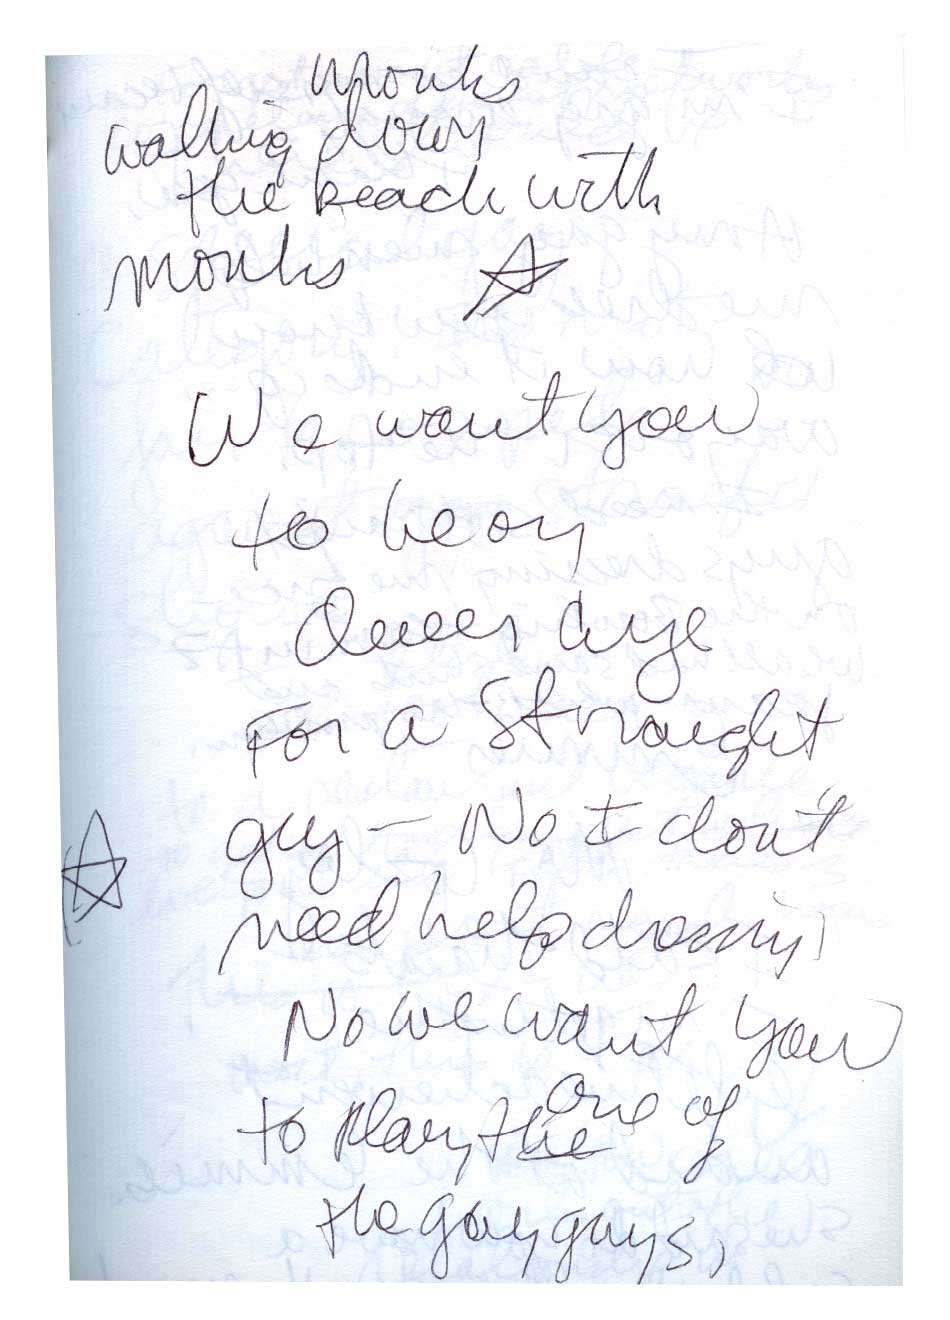 Monks
walking down
the beach with
monks
We want you
to be on
Queer Eye
For a Straight
guy — No I don't
need help dressing
No we want you
to play the one of
the gay guys,